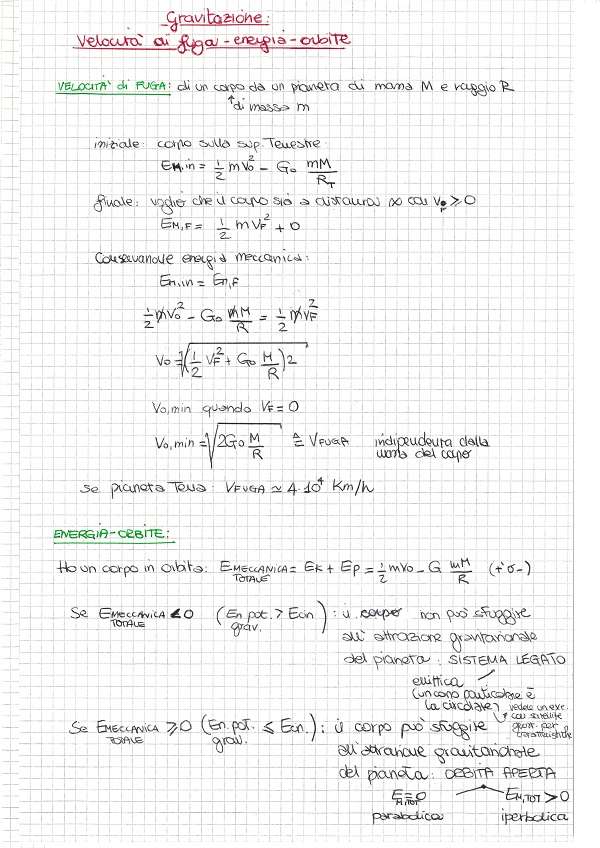 Gravitazione:
Velocità di fuga - energia - orbite
VELOCITA' di FUGA: di un corpo da un pianeta di massa M e raggio R
↑ di massa m
iniziale: corpo sulla sup. Terrestre
EM,in = 1/2 mV₀² - G₀ mM/R_T
finale: voglio che il corpo sia a distanza ∞ con V_F ⩾ 0
EM,F = 1/2 m V_F² + 0
Conservazione energia meccanica:
Em,in = Em,F
1/2 mV₀² - G₀ mM/R = 1/2 mV_F²
V₀ = √(1/2 V_F² + G₀ M/R)2
V₀,min quando V_F = 0
V₀,min = √2G₀ M/R ≙ V_FUGA indipendente dalla
massa del corpo
se pianeta Terra: V_FUGA ≃ 4·10⁴ Km/h
ENERGIA-ORBITE:
Ho un corpo in orbita: E_MECCANICA TOTALE = Ek + Ep = 1/2 mV₀ - G mM/R (+ o -)
Se E_MECCANICA TOTALE < 0 (En pot. grav. > Ecin): il corpo non può sfuggire
all'attrazione gravitazionale
del pianeta: SISTEMA LEGATO
ellittica
(un caso particolare è
la circolare)
con satellite
Se E_MECCANICA TOTALE ⩾ 0 (En. pot. grav. ⩽ Ecin.): il corpo può sfuggire
all'attrazione gravitazionale
del pianeta: ORBITA APERTA
E_M,TOT = 0 E_M,TOT > 0
parabolica iperbolica